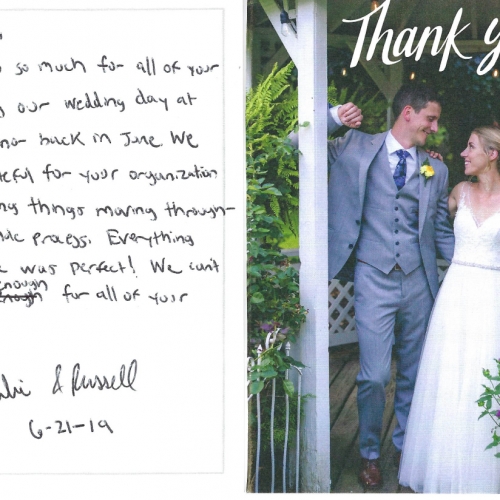 so much for all of your
our wedding day at
back in June. We
for your organization
things moving through-
process. Everything
was perfect! We can't
enough
for all of your
& Russell
6-21-19
Thank y